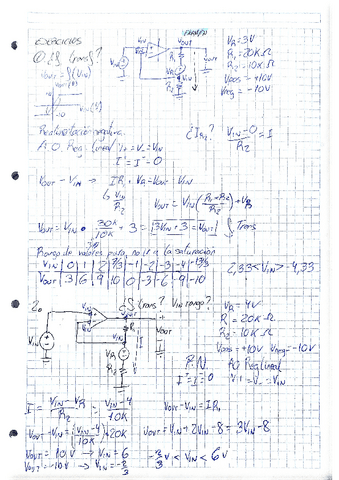 EJERCICIOS
① ¿f trans?
Vout = f(Vin)
EJEMPLO
Vin
Vout
R1
VR
R2
VR = 3V
R1 = 20KΩ
R2 = 10KΩ
Vpos = +10V
Vneg = -10V
Realimentación negativa
A.O. Reg. lineal V+ = V- = Vin
I+ = I- = 0
¿IR2? Vin-0/R2 = I
Vout - Vin → IR1 + VR = Vout - Vin
Vin/R2
Vout = Vin (R1+R2/R2) + VR
Vout = Vin · 30K/10K + 3 = 3Vin + 3 = Vout } f Trans
Rango de valores para no ir a la saturación
Vin | 0 | 1 | 2 | 7/3 | -1 | -2 | -3 | -4 | -13/3
Vout | 3 | 6 | 9 | 10 | 0 | -3 | -6 | -9 | -10
2,33 < Vin > -4,33
2o
¿f trans? Vin rango?
Vin
Vout
R1
VR
R2
VR = 4V
R1 = 20KΩ
R2 = 10KΩ
Vpos = +10V Vneg = -10V
R.N. AO Reg lineal
I+ = I- = 0 V+ = V- = Vin
I = Vin - VR/R2 = Vin-4/10K
Vout - Vin = IR1
Vout - Vin = (Vin-4/10K) 20K
Vout = Vin + 2Vin - 8 = 3Vin - 8
Vout = 10V → Vin = 6
Vout = -10V → Vin = -2/3
-2/3 V < Vin < 6V